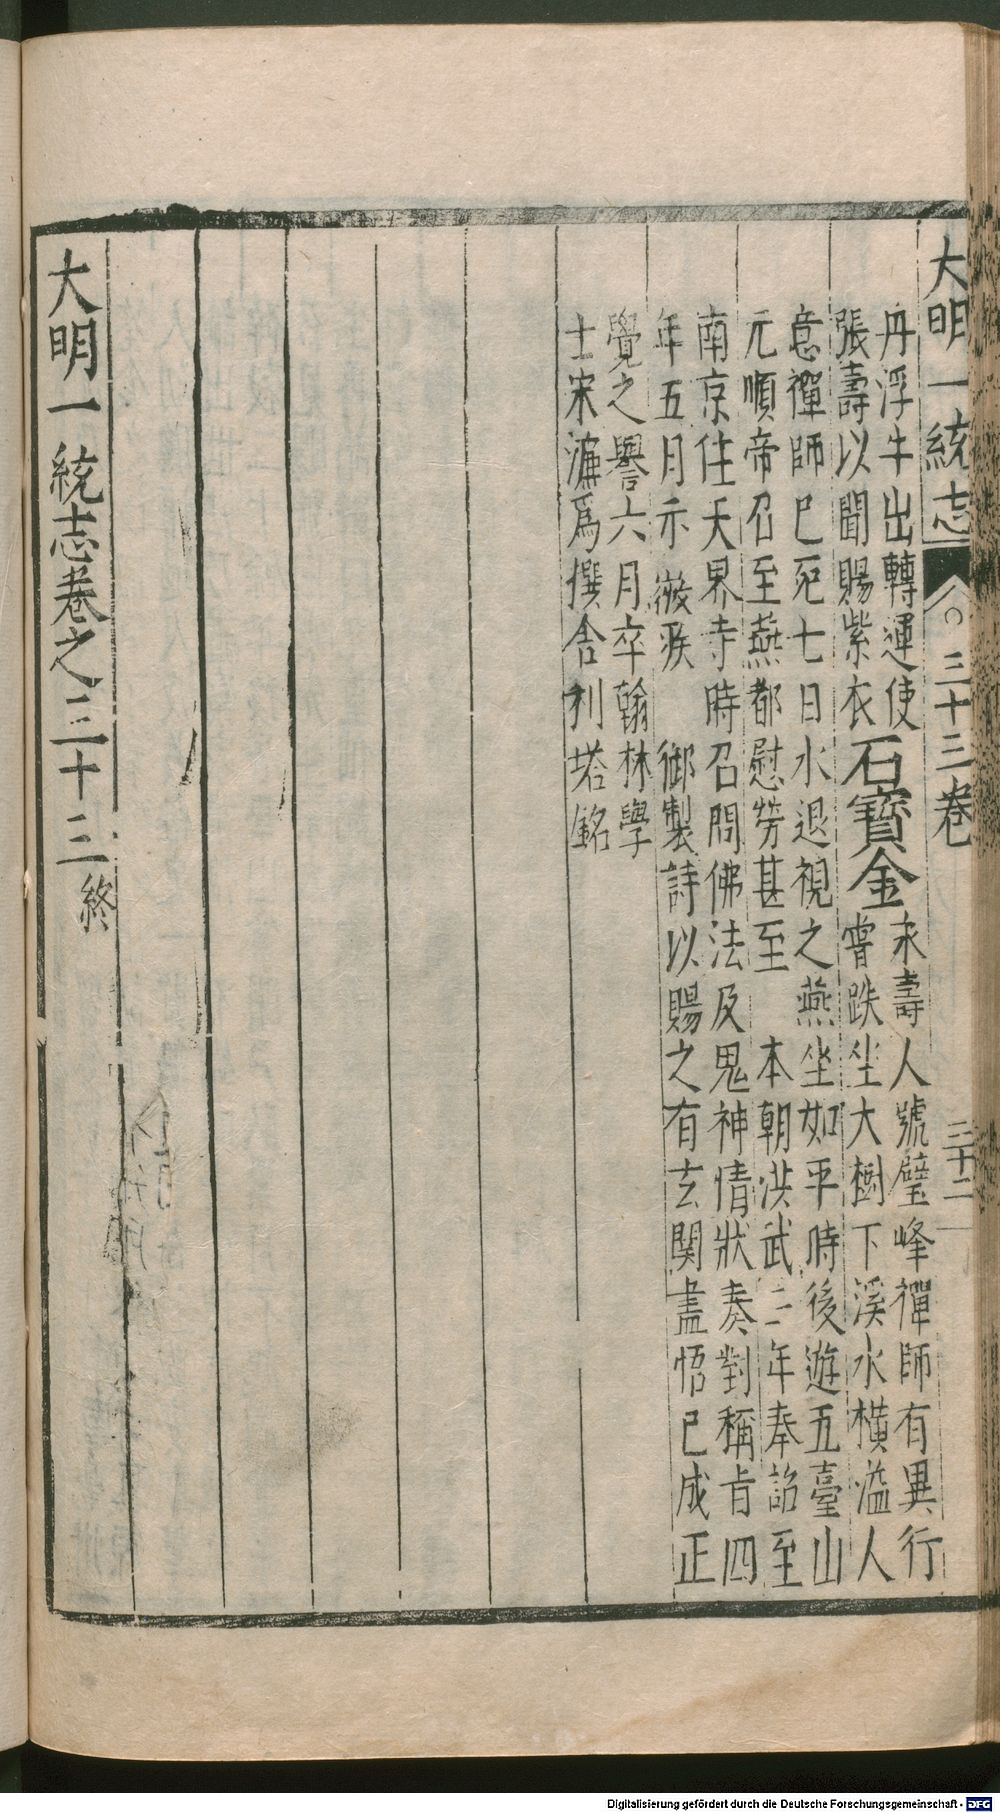 大明一統志
三十三卷
三十二
丹浮牛出轉運使
張壽以聞賜紫衣
石寶金
永壽人號璧峰禪師有異行
嘗趺坐大樹下溪水橫溢人
意禪師已死七日水退視之燕坐如平時後遊五臺山
元順帝召至燕都慰勞甚至 本朝洪武二年奉詔至
南京住天界寺時召問佛法及鬼神情狀奏對稱旨四
年五月示微疾 御製詩以賜之有玄関盡悟已成正
覺之譽六月卒翰林學
士宋濂爲撰舍利塔銘
大明一統志卷之三十三終
Digitalisierung gefördert durch die Deutsche Forschungsgemeinschaft - DFG